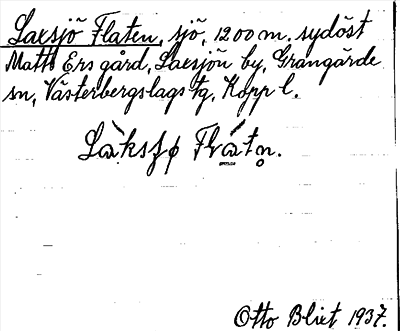 Laxsjö Flaten, sjö, 1200 m. sydöst
Matts Ers gård, Laxsjön by, Grangärde
sn, Västerbergslags tg, Kopp l.
Làksʃø Flátn̥.
Otto Blixt 1937.